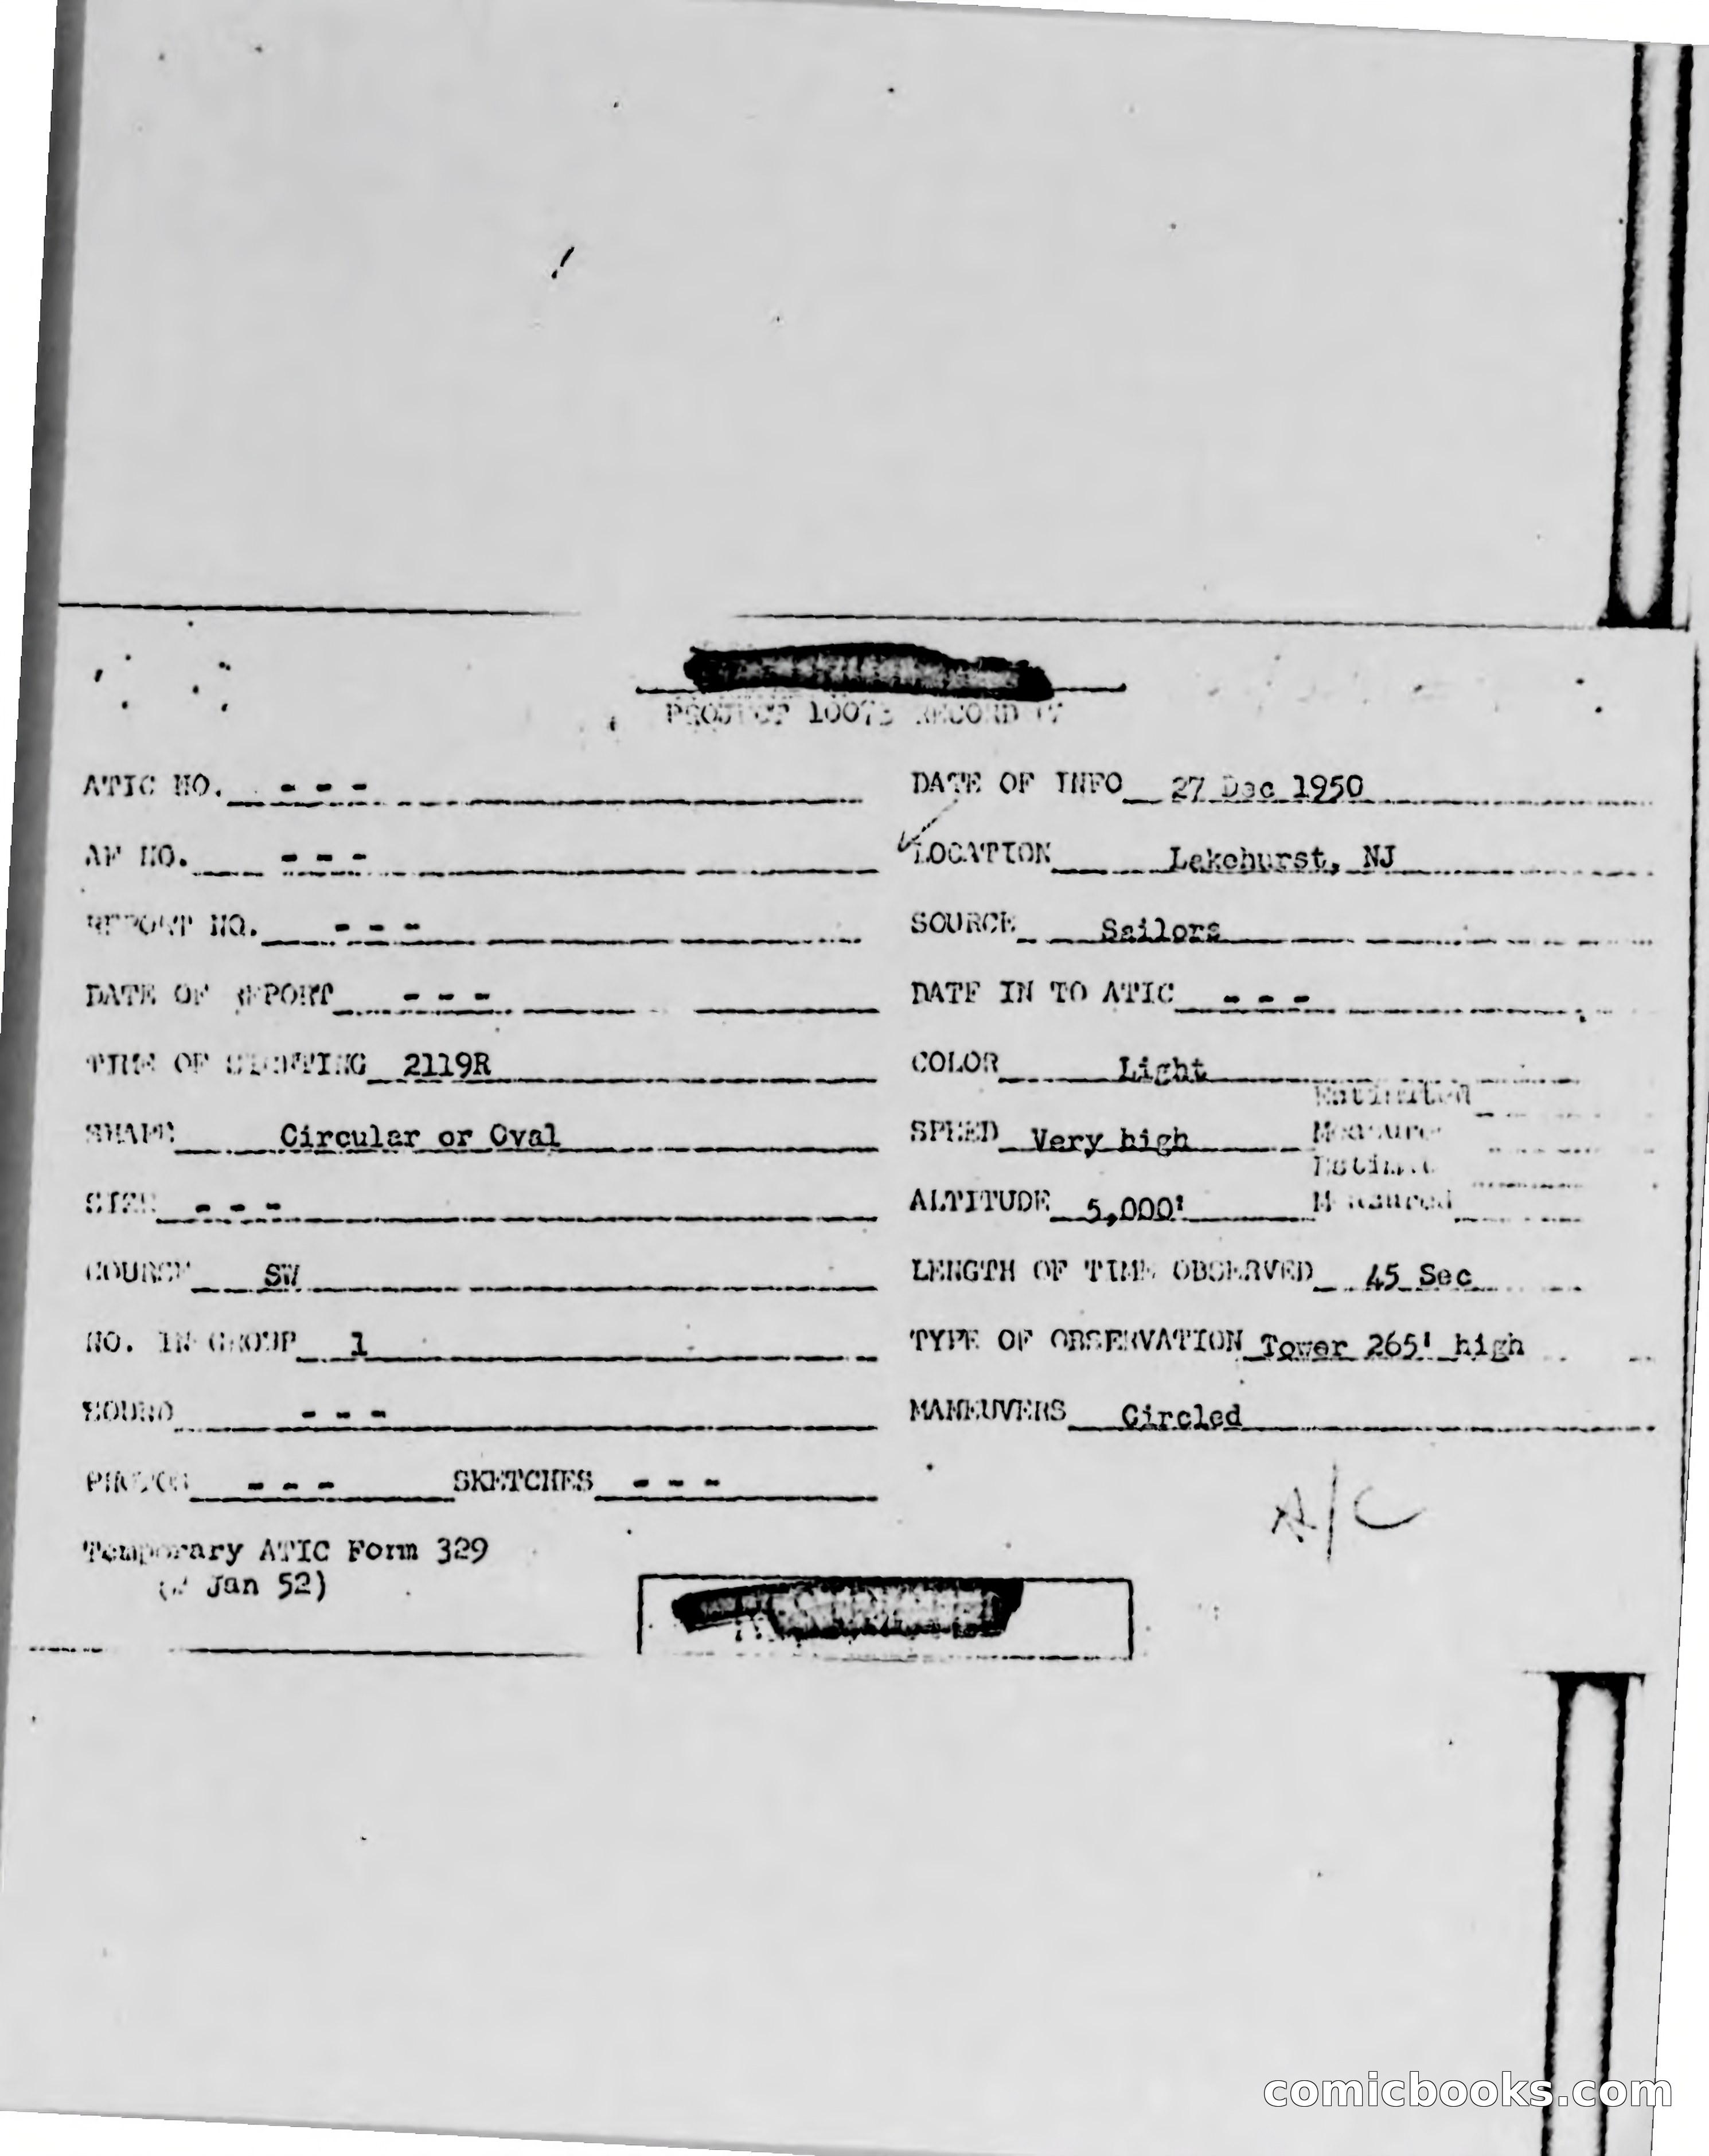 PROJECT 10073 RECORD
ATIC NO. - - -
DATE OF INFO 27 Dec 1950
AF NO. - - -
LOCATION Lakehurst, NJ
REPORT NO. - - -
SOURCE Sailors
DATE OF REPORT - - -
DATE IN TO ATIC - - -
TIME OF SIGHTING 2119R
COLOR Light
Estimated
SHAPE Circular or Oval
SPEED Very high Measured
Estimated
SIZE - - -
ALTITUDE 5,000' Measured
COURSE SW
LENGTH OF TIME OBSERVED 45 Sec
NO. IN GROUP 1
TYPE OF OBSERVATION Tower 265' high
SOUND - - -
MANEUVERS Circled
PHOTOS - - - SKETCHES - - -
A/C
Temporary ATIC Form 329
Jan 52)
comicbooks.com